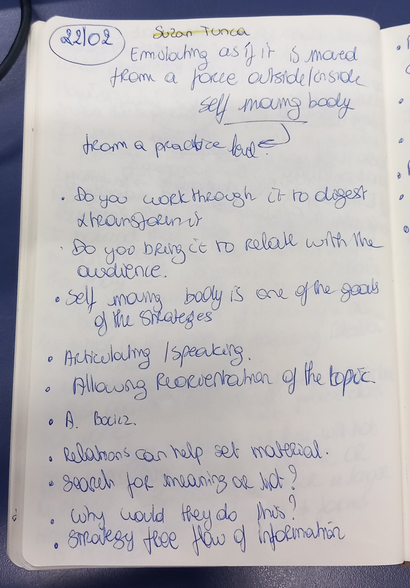 22/02
Suzan Tunca
Emulating as if it is moved
from a force outside/inside
self moving body
from a practice
. Do you work through it to digest
& transform it
. Do you bring it to relate with the
audience.
. Self moving body is one of the goals
of the strategies
. Articulating / speaking.
. Allowing Reorientation of the topic.
. A.
. Relations can help set material.
. search for meaning or not?
. why would they do this?
. strategy free flow of information